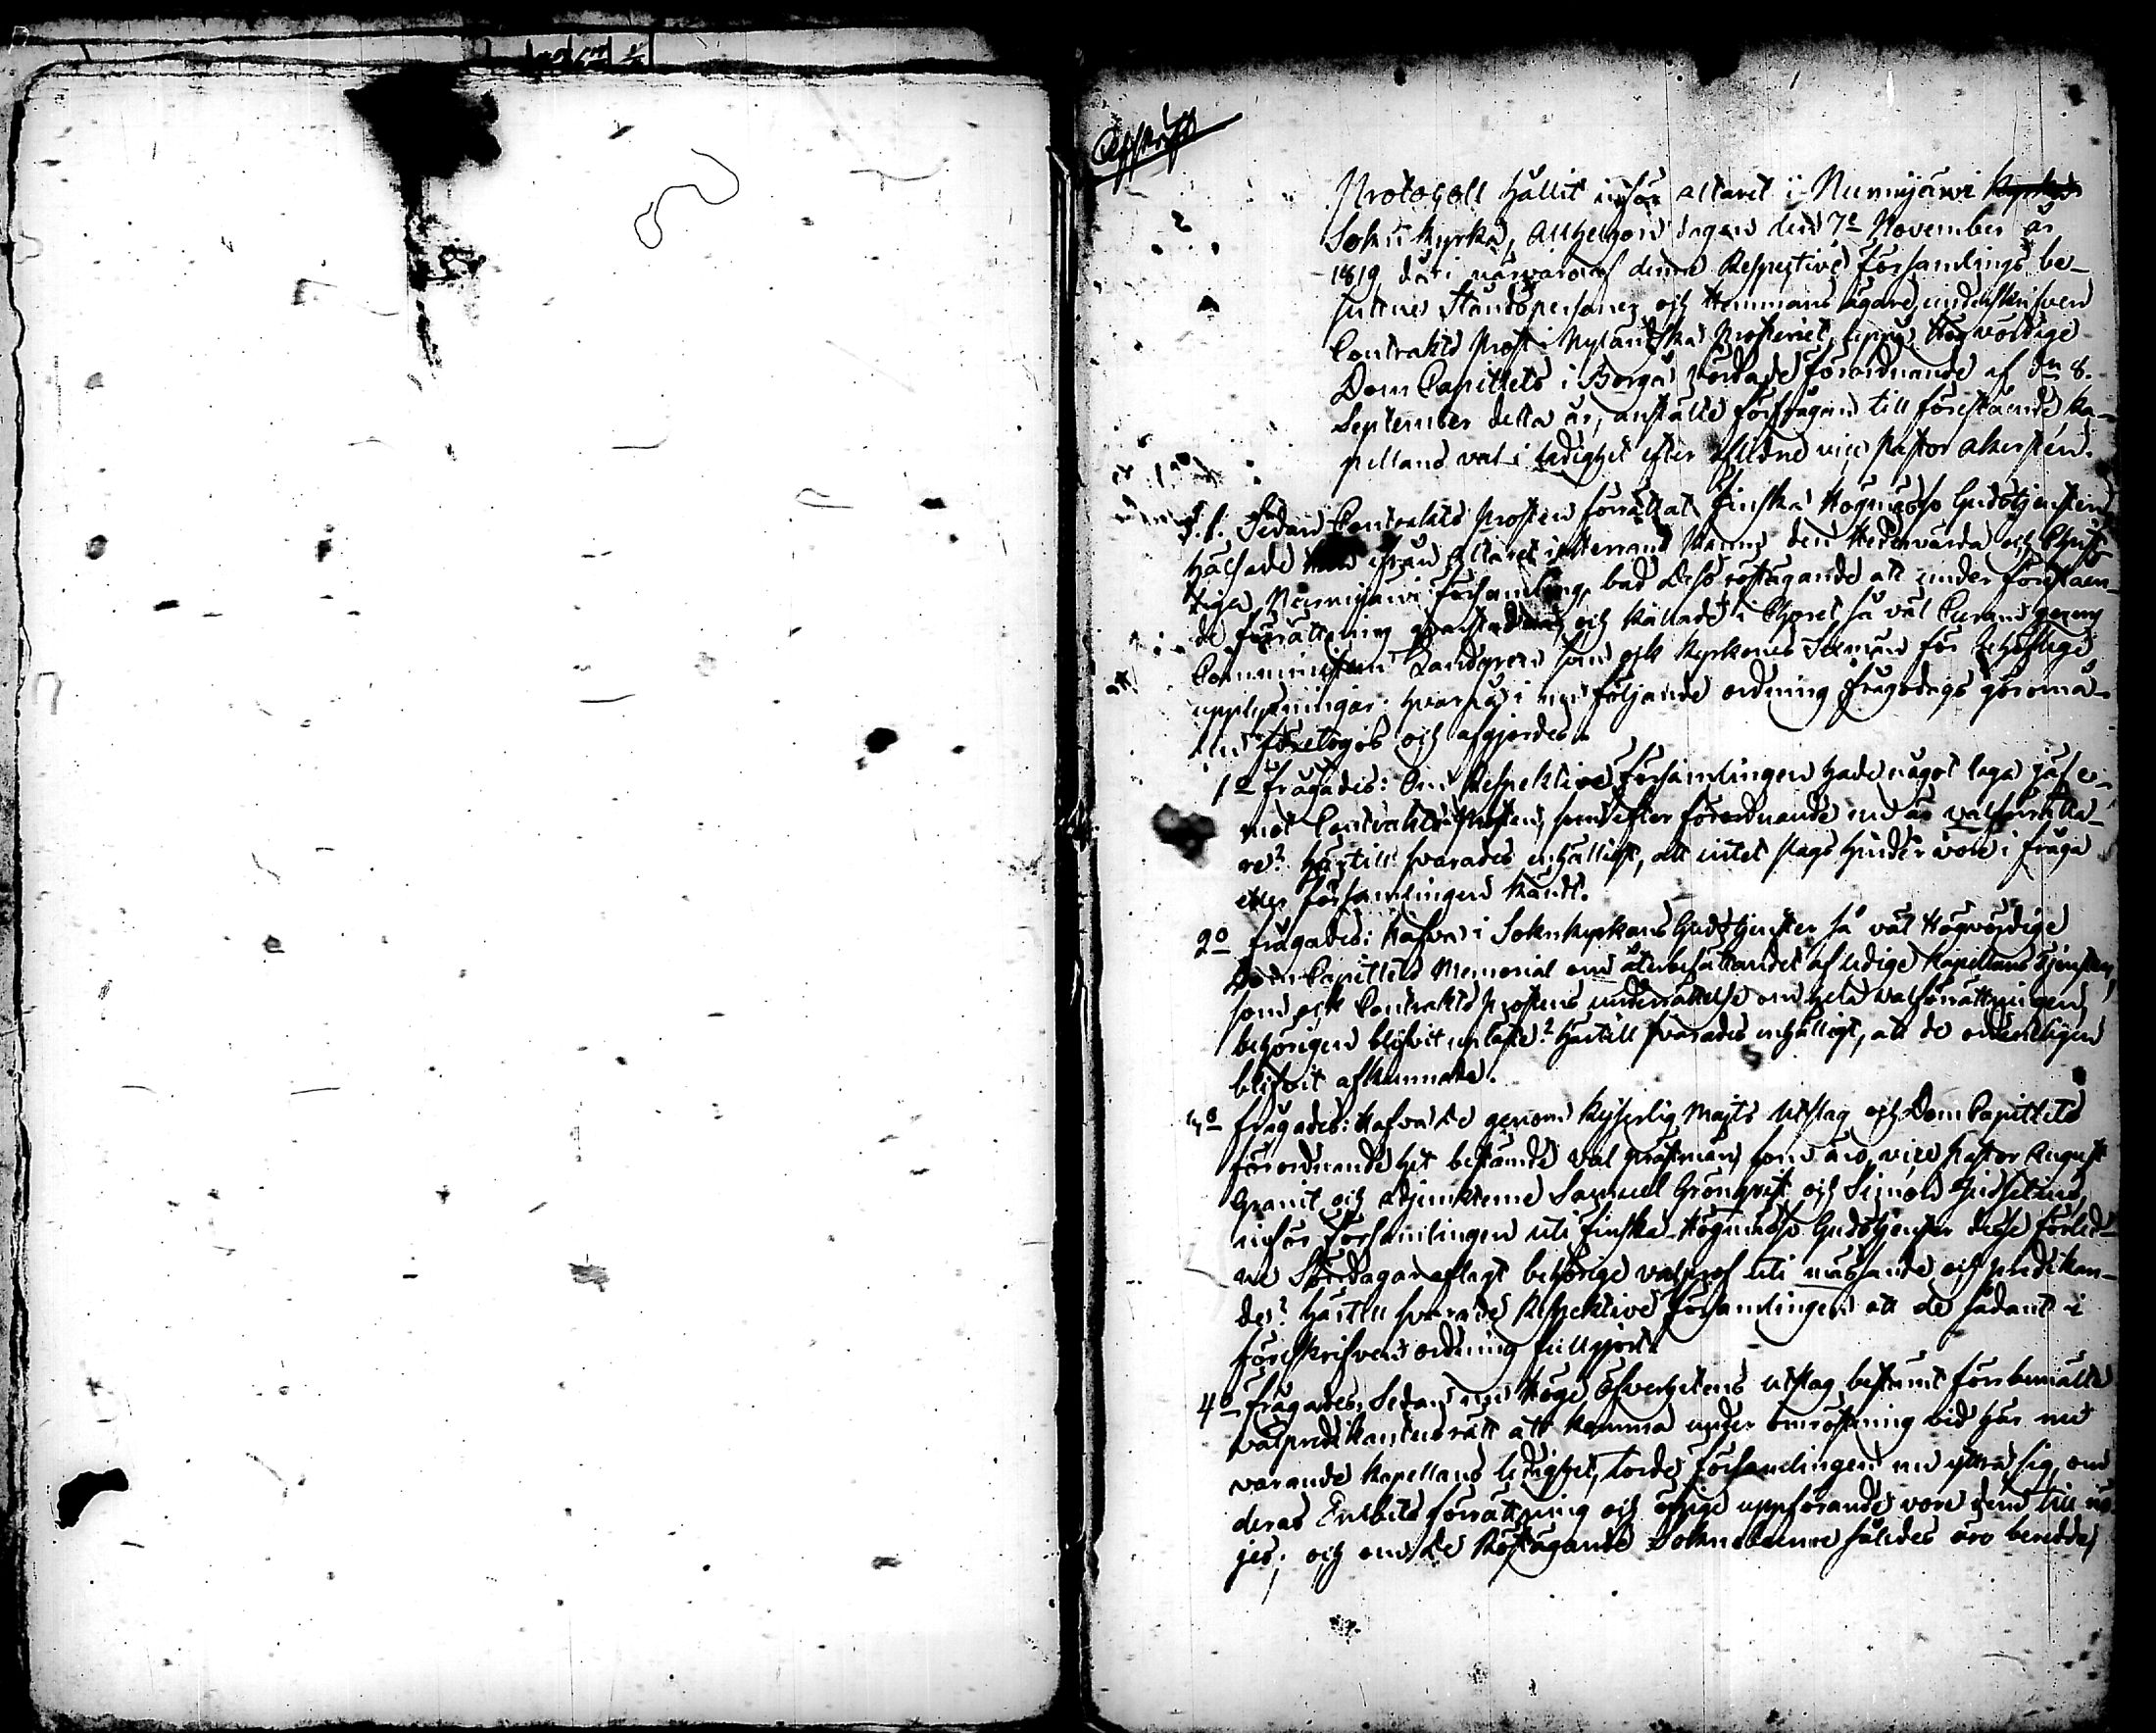 Afskrift
Protocoll hållit inför altaret i Nurmijärwi
Sokn kyrka, Allhelgona dagen den 7e November år
1819 då i närvaro af denna Respective församlings be-
sutene Ståndspersoner och Hemmans ägare, underskrifven
Contrakts Prost i Nyländska Prosteriet, uppå Högvördige
Dom Capitlets i Borgå vördade förordnande af dn 8.
September detta år, anstälte förfrågan till förestående Ka-
pellans val i ledighet efter aflidne vice Pastor Akerstén.
S.f. Sedan Contrakts Prosten förrättat Finska Högmässo Gudstjensten
hälsade ifrån Altaret den Hedervärda och Christ-
liga Nurmijärwi församling, bad dess röstägande att under föreståen-
de förrättning och kallade i Choret så väl
Comministern Landgren som ock kyrkones Sexmän för behöflige
upplysningar: hvarpå i näst följande ordning frågodags göromå-
len företogos och afgjordes.
1o frågades: Om Respektive församlingen hade något laga jäf e-
mot Contrakts Prosten, som efter förordnande nu är valförrätta-
re? Härtill svarades enhälligt, att intet slags hinder vore i fråga
eller församlingen kändt.
2o frågades: Hafva i Soknkyrkans Gudstjenster så väl Högvördige
Dom Capitlets Memorial om återbesättandet af ledige Kapellans tjensten,
som ock Contrakts Prostens underrättelse om hela valförrättningen,
behörigen blifvit upläste? Härtill svarades enhälligt, att de ordentligen
blifvit afkunnade.
3o frågades: Hafva de genom Kejserlig Majts Utslag och Dom Capitlets
förordnande hit bestämde val prästmän, som äro, vice Pastor August
Granit och Adjunkterne Samuel Grönqvist och Simon
inför församlingen uti finska Högmässo Gudstjenster desse förled-
ne Söndagar aflagt behörige valprof uti mässande och predikan-
de? Härtill svarade Respektive församlingen att de sådant i
föreskrifven ordning fullgjort.
4o frågades, Sedan nu Höge Öfverhetens utslag bestämt förbemälte
valpredikanters rätt att komma under omröstning vid här nu
varande Kapellans ledighet, torde församlingen nu yttra sig, om
deras Embets förrättning och öfrige uppförande vore dem till nö-
jes; och om de Röstägande Sokneboerne således äro beredde,